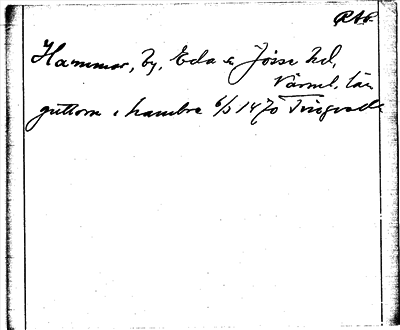 RAP.
Hammar, by, Eda s. Jösse hd,
Värml. län
guttorm i hambre 6/5 1470 Tingvalla